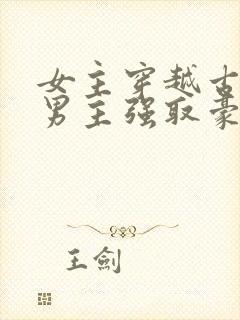 女主穿越古
男主强取豪
王劍